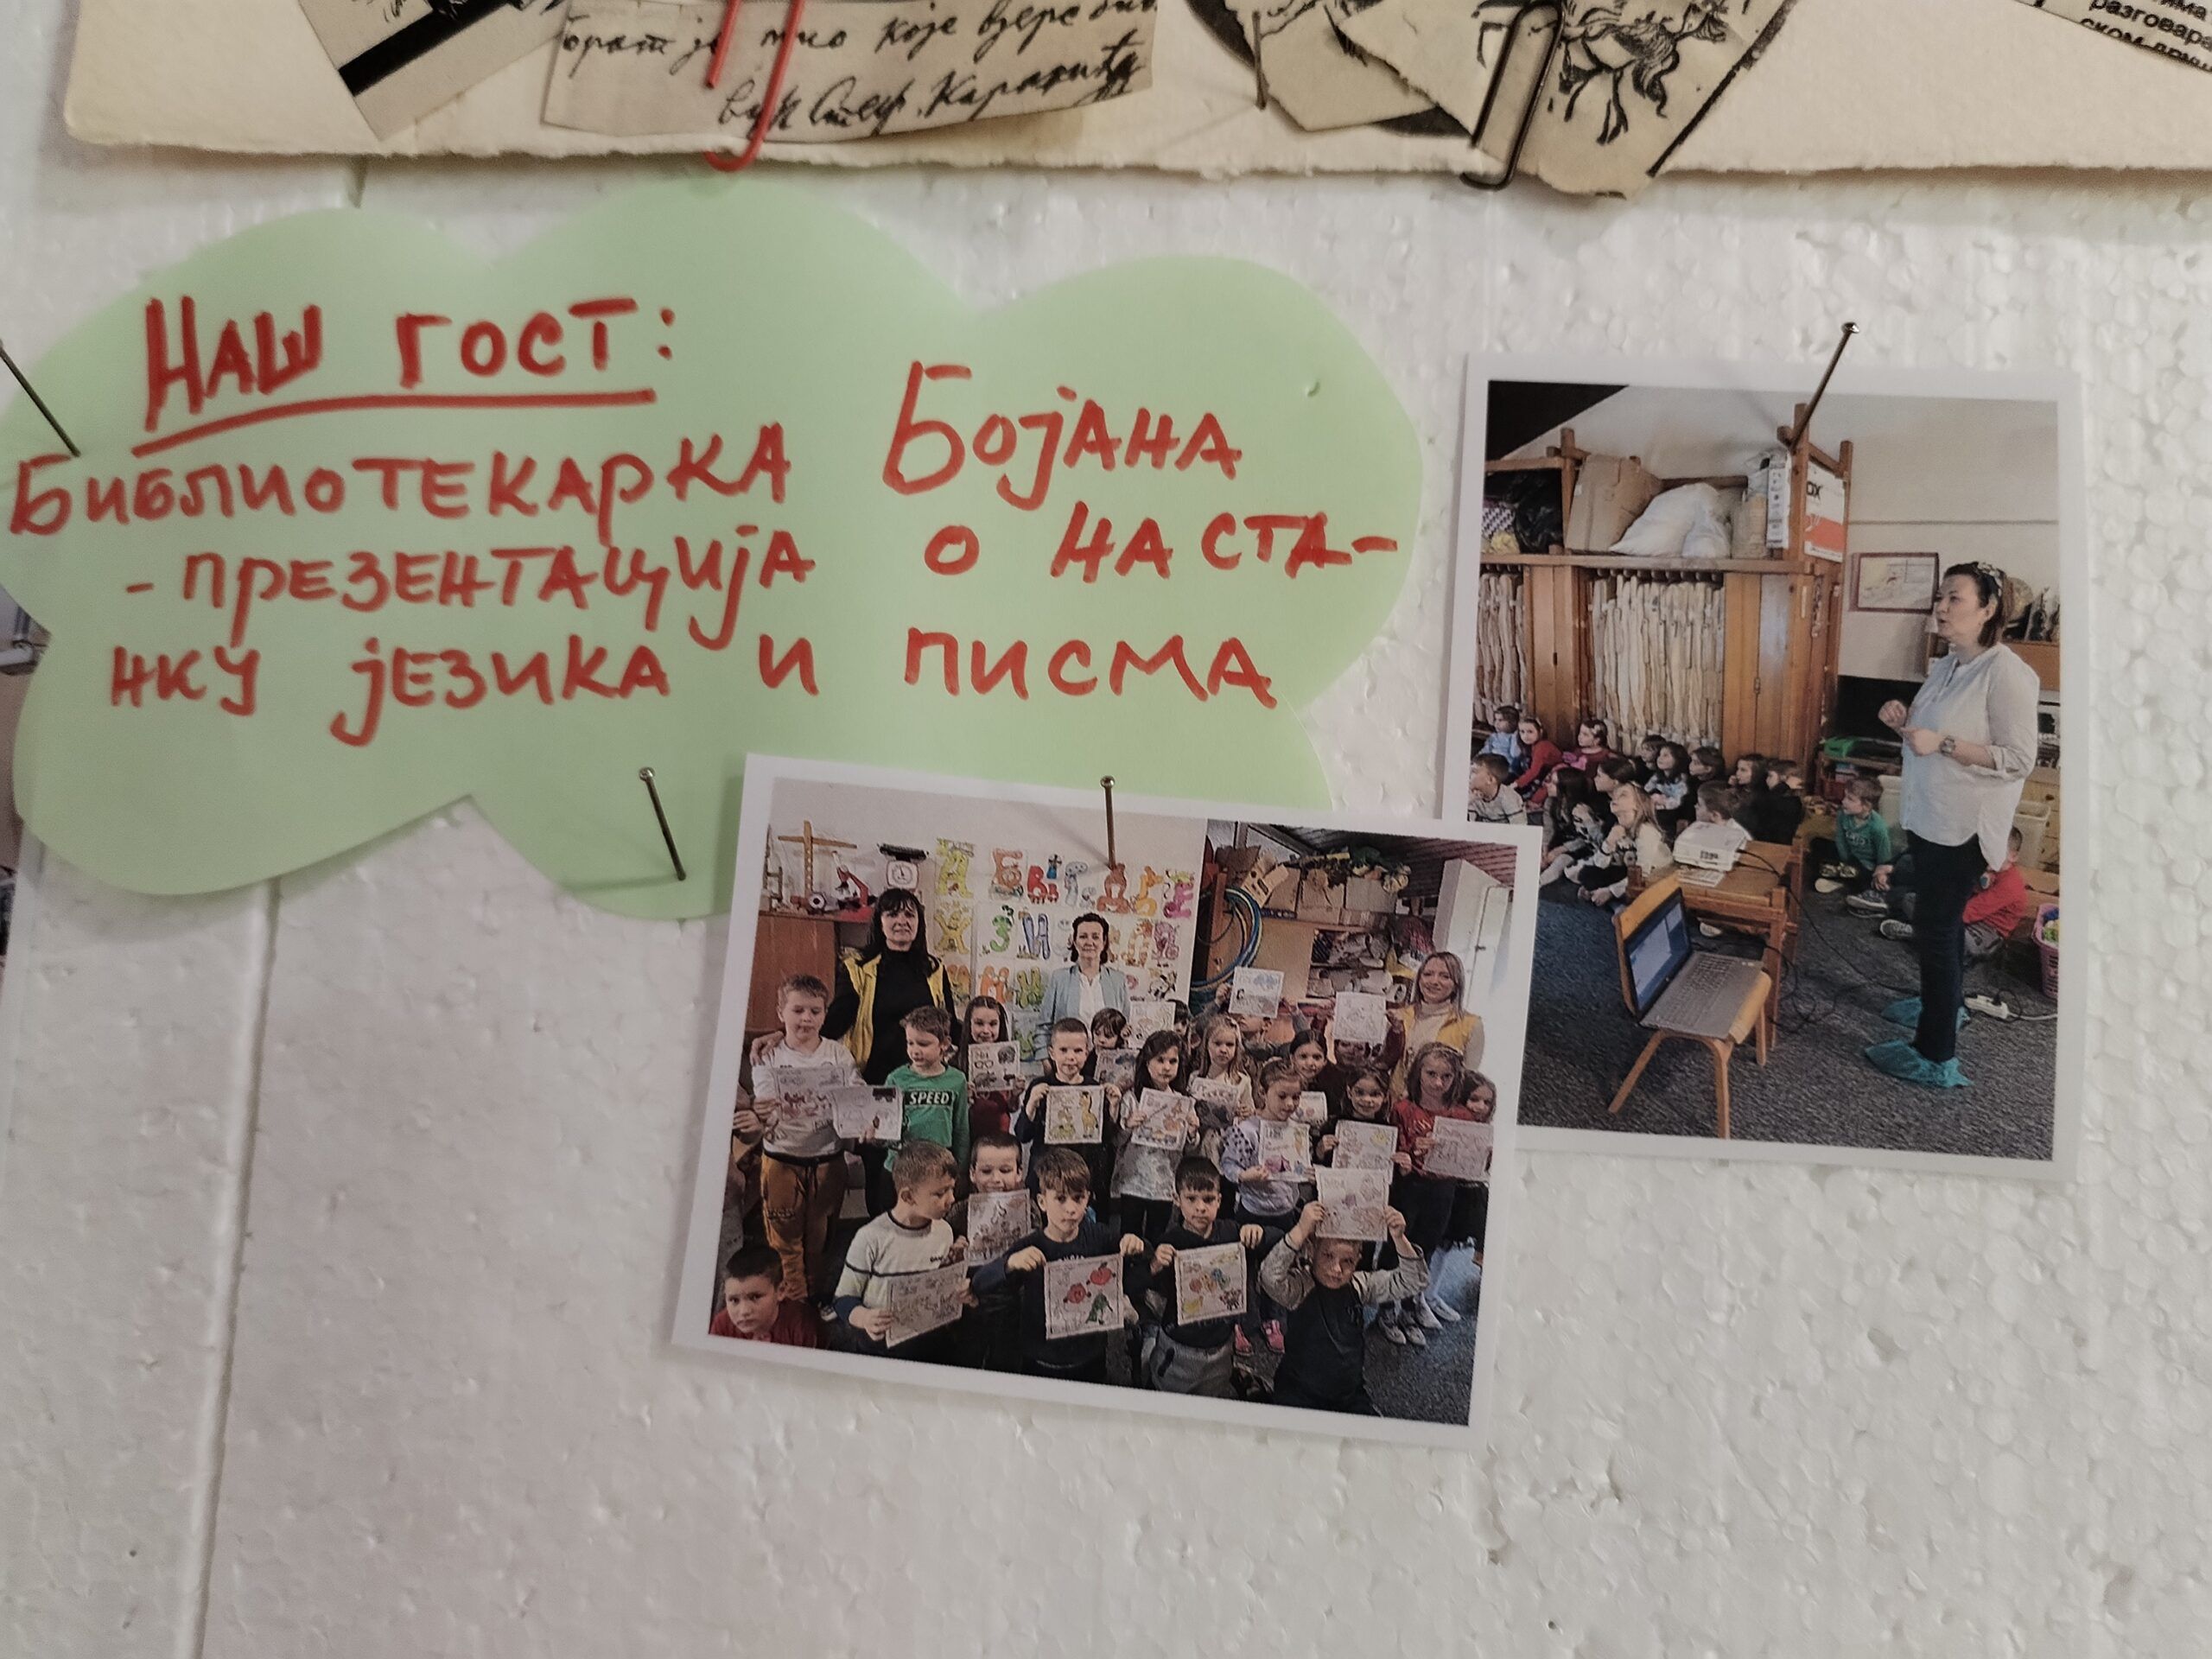 брат је мио које вјере био
Вук Стеф. Караџић
разговара
НАШ ГОСТ:
БИБЛИОТЕКАРКА БОЈАНА
- ПРЕЗЕНТАЦИЈА О НАСТА-
НКУ ЈЕЗИКА И ПИСМА
SPEED